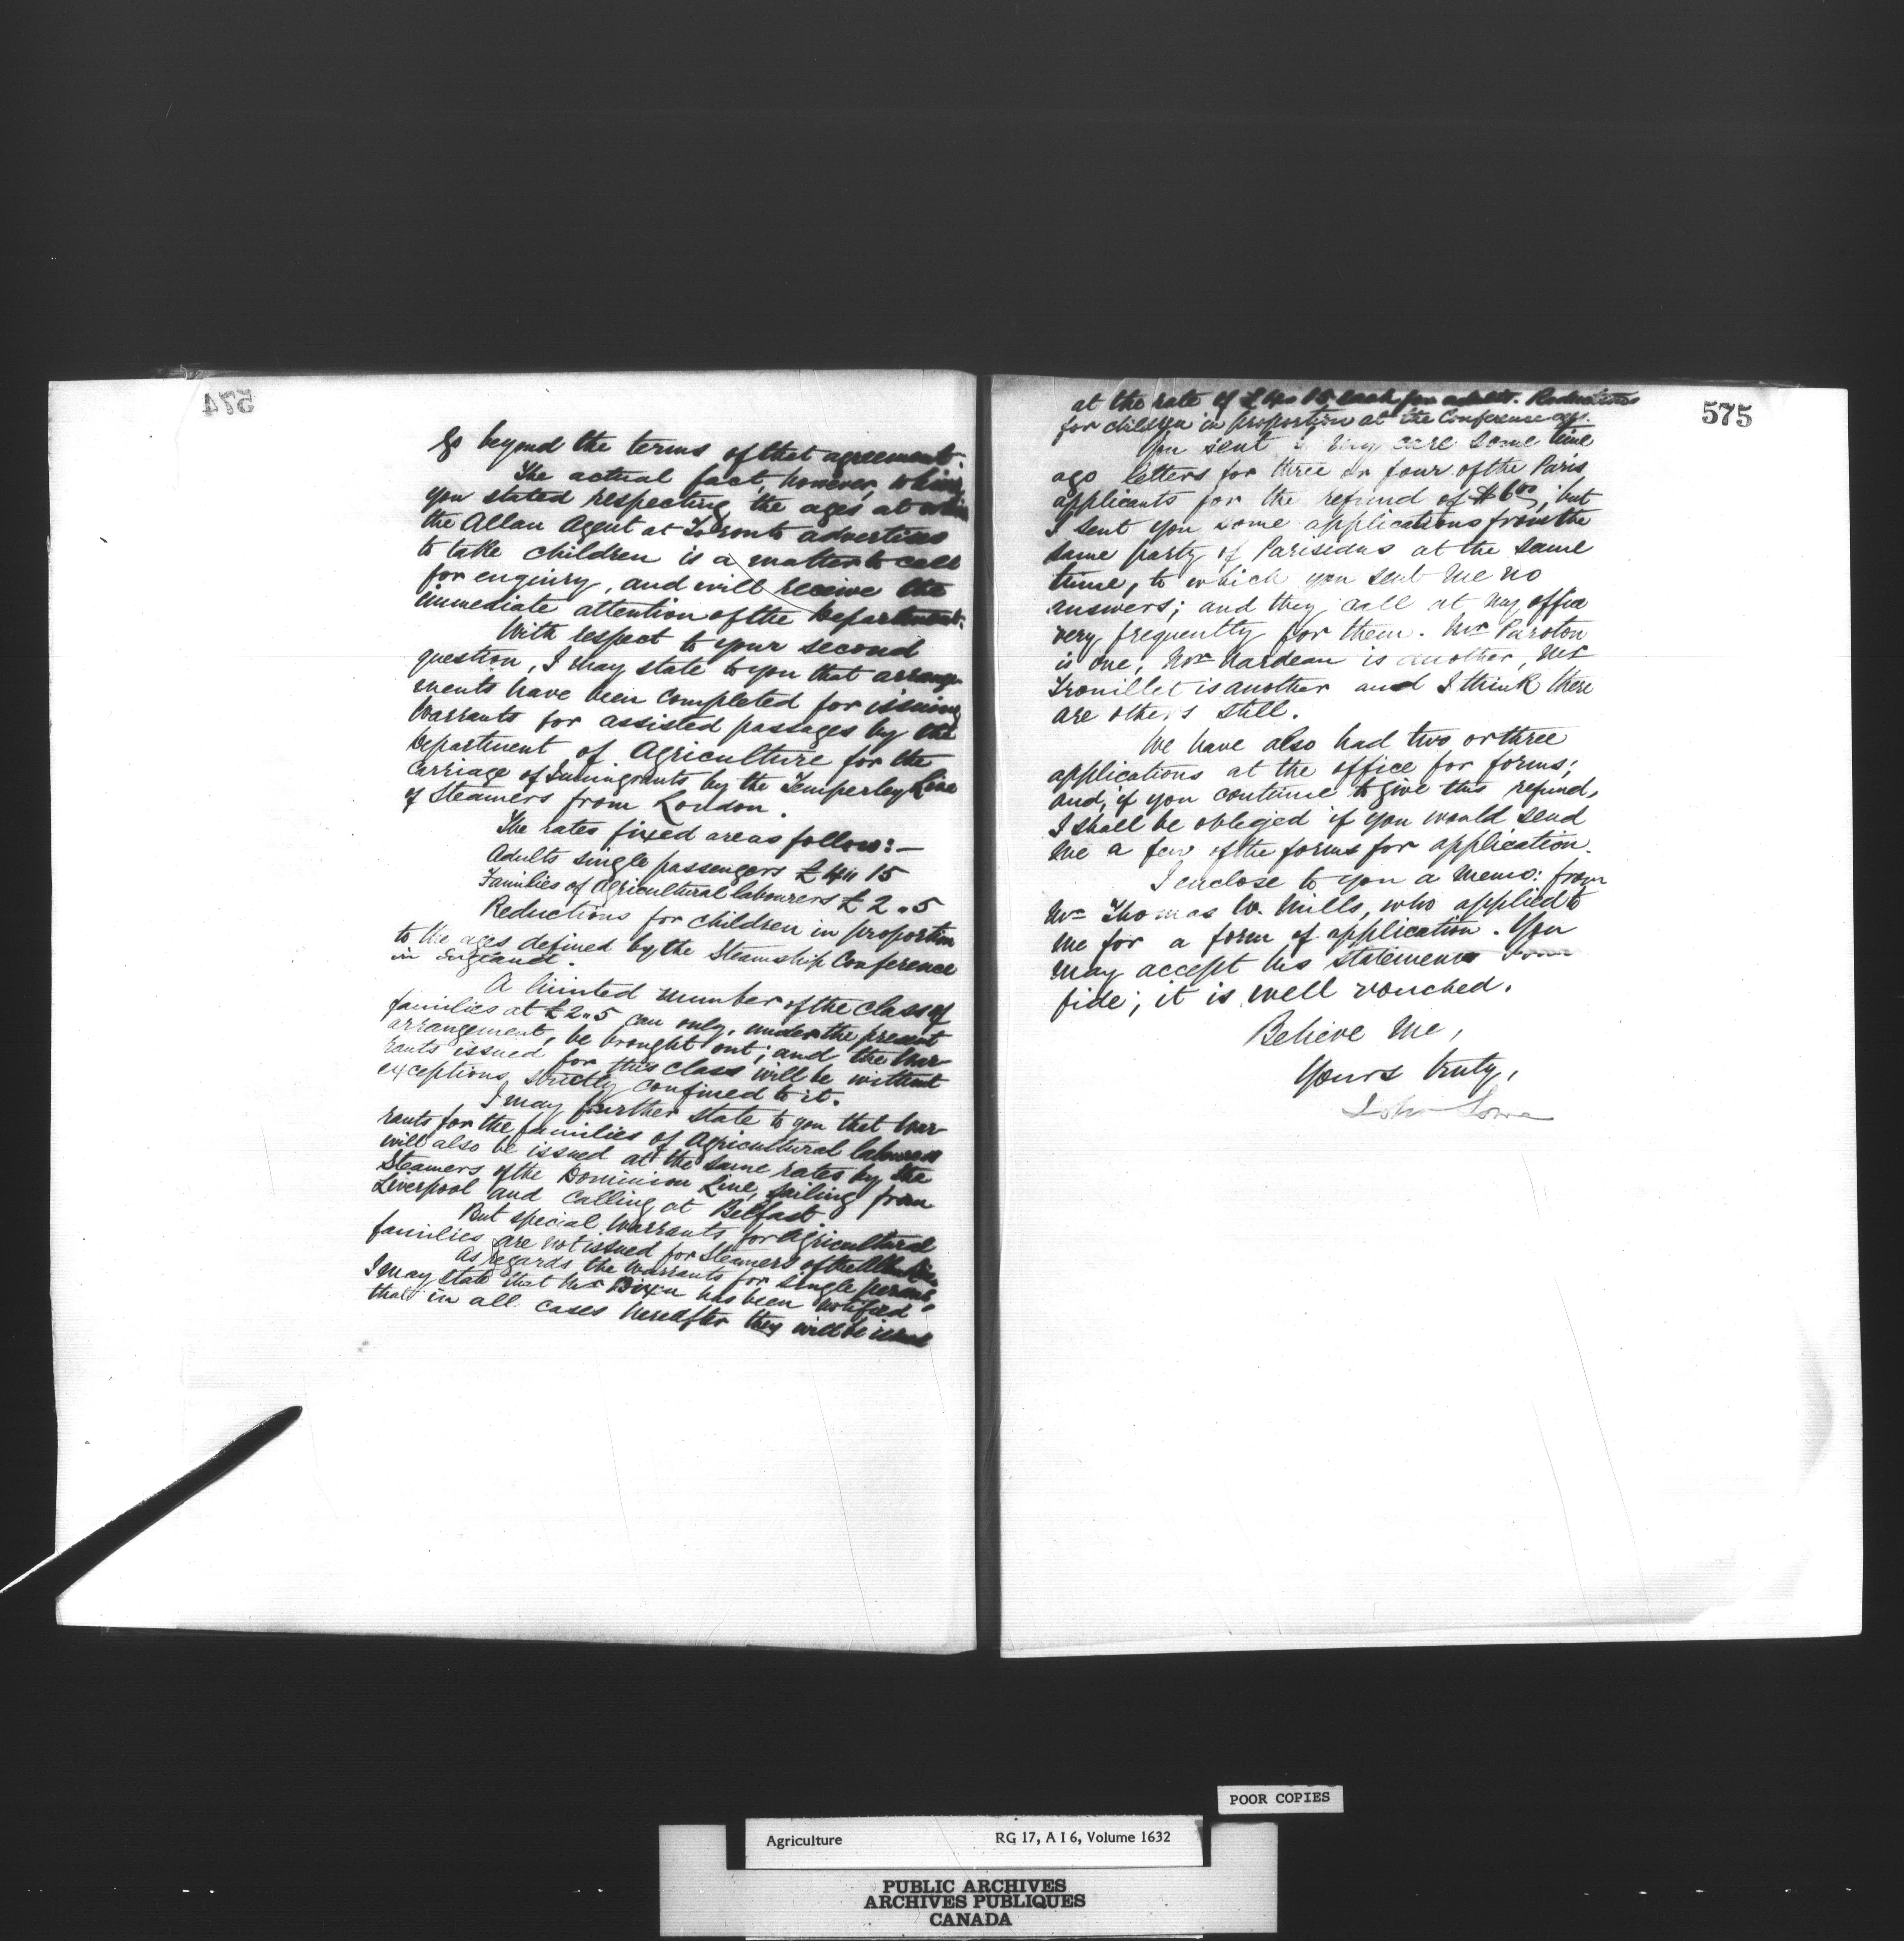 574
go beyond the terms of that agreement.
The actual fact, however, which
you stated respecting the ages at which
the Allan Agent at Toronto advertises
to take children is a matter to call
for enquiry, and will receive the
immediate attention of the Department.
With respect to your second
question, I may state to you that arrange-
ments have been completed for issuing
Warrants for assisted passages by the
Department of Agriculture for the
Carriage of Immigrants by the Temperley Line
of Steamers from London.
The rates fixed are as follow:—
Adults single passengers £4 " 15
Families of Agricultural labourers £2 " 5
Reductions for children in proportion
to the ages defined by the Steamship Conference
in England.
A limited number of the class of
families at £2 " 5 can only, under the present
arrangement, be brought out; and the War-
rants issued for this class will be without
exceptions strictly confined to it.
I may further state to you that War-
rants for the families of Agricultural labourers
will also be issued at the same rates by the
Steamers of the Dominion Line, sailing from
Liverpool and calling at Belfast
But special Warrants for Agricultural
families are not issued for Steamers of the Allan Line.
As regards the Warrants for single persons,
I may state that Mr Dixon has been notified
that in all cases hereafter they will be issued
575
at the rate of £4 " 15 each for adults. Reductions
for children in proportion at the Conference ages.
You sent my care some time
ago letters for three or four of the Paris
applicants for the refund of $6 00; but
I sent you some applications from the
same party of Parisians at the same
time, to which you sent me no
answers; and they call at my office
very frequently for them. Mr Paroton
is one, Mr Nardeau is another, Mr
Trouillet is another and I think there
are others still.
We have also had two or three
applications at the office for forms;
and, if you continue to give this refund,
I shall be obliged if you would send
me a few of the forms for application.
I enclose to you a Memo: from
Mr Thomas W. Mills, who applied to
me for a form of application. You
may accept his statement bona
fide; it is well vouched.
Believe me,
Yours truly,
John Lowe
POOR COPIES
Agriculture RG 17, A I 6, Volume 1632
PUBLIC ARCHIVES
ARCHIVES PUBLIQUES
CANADA